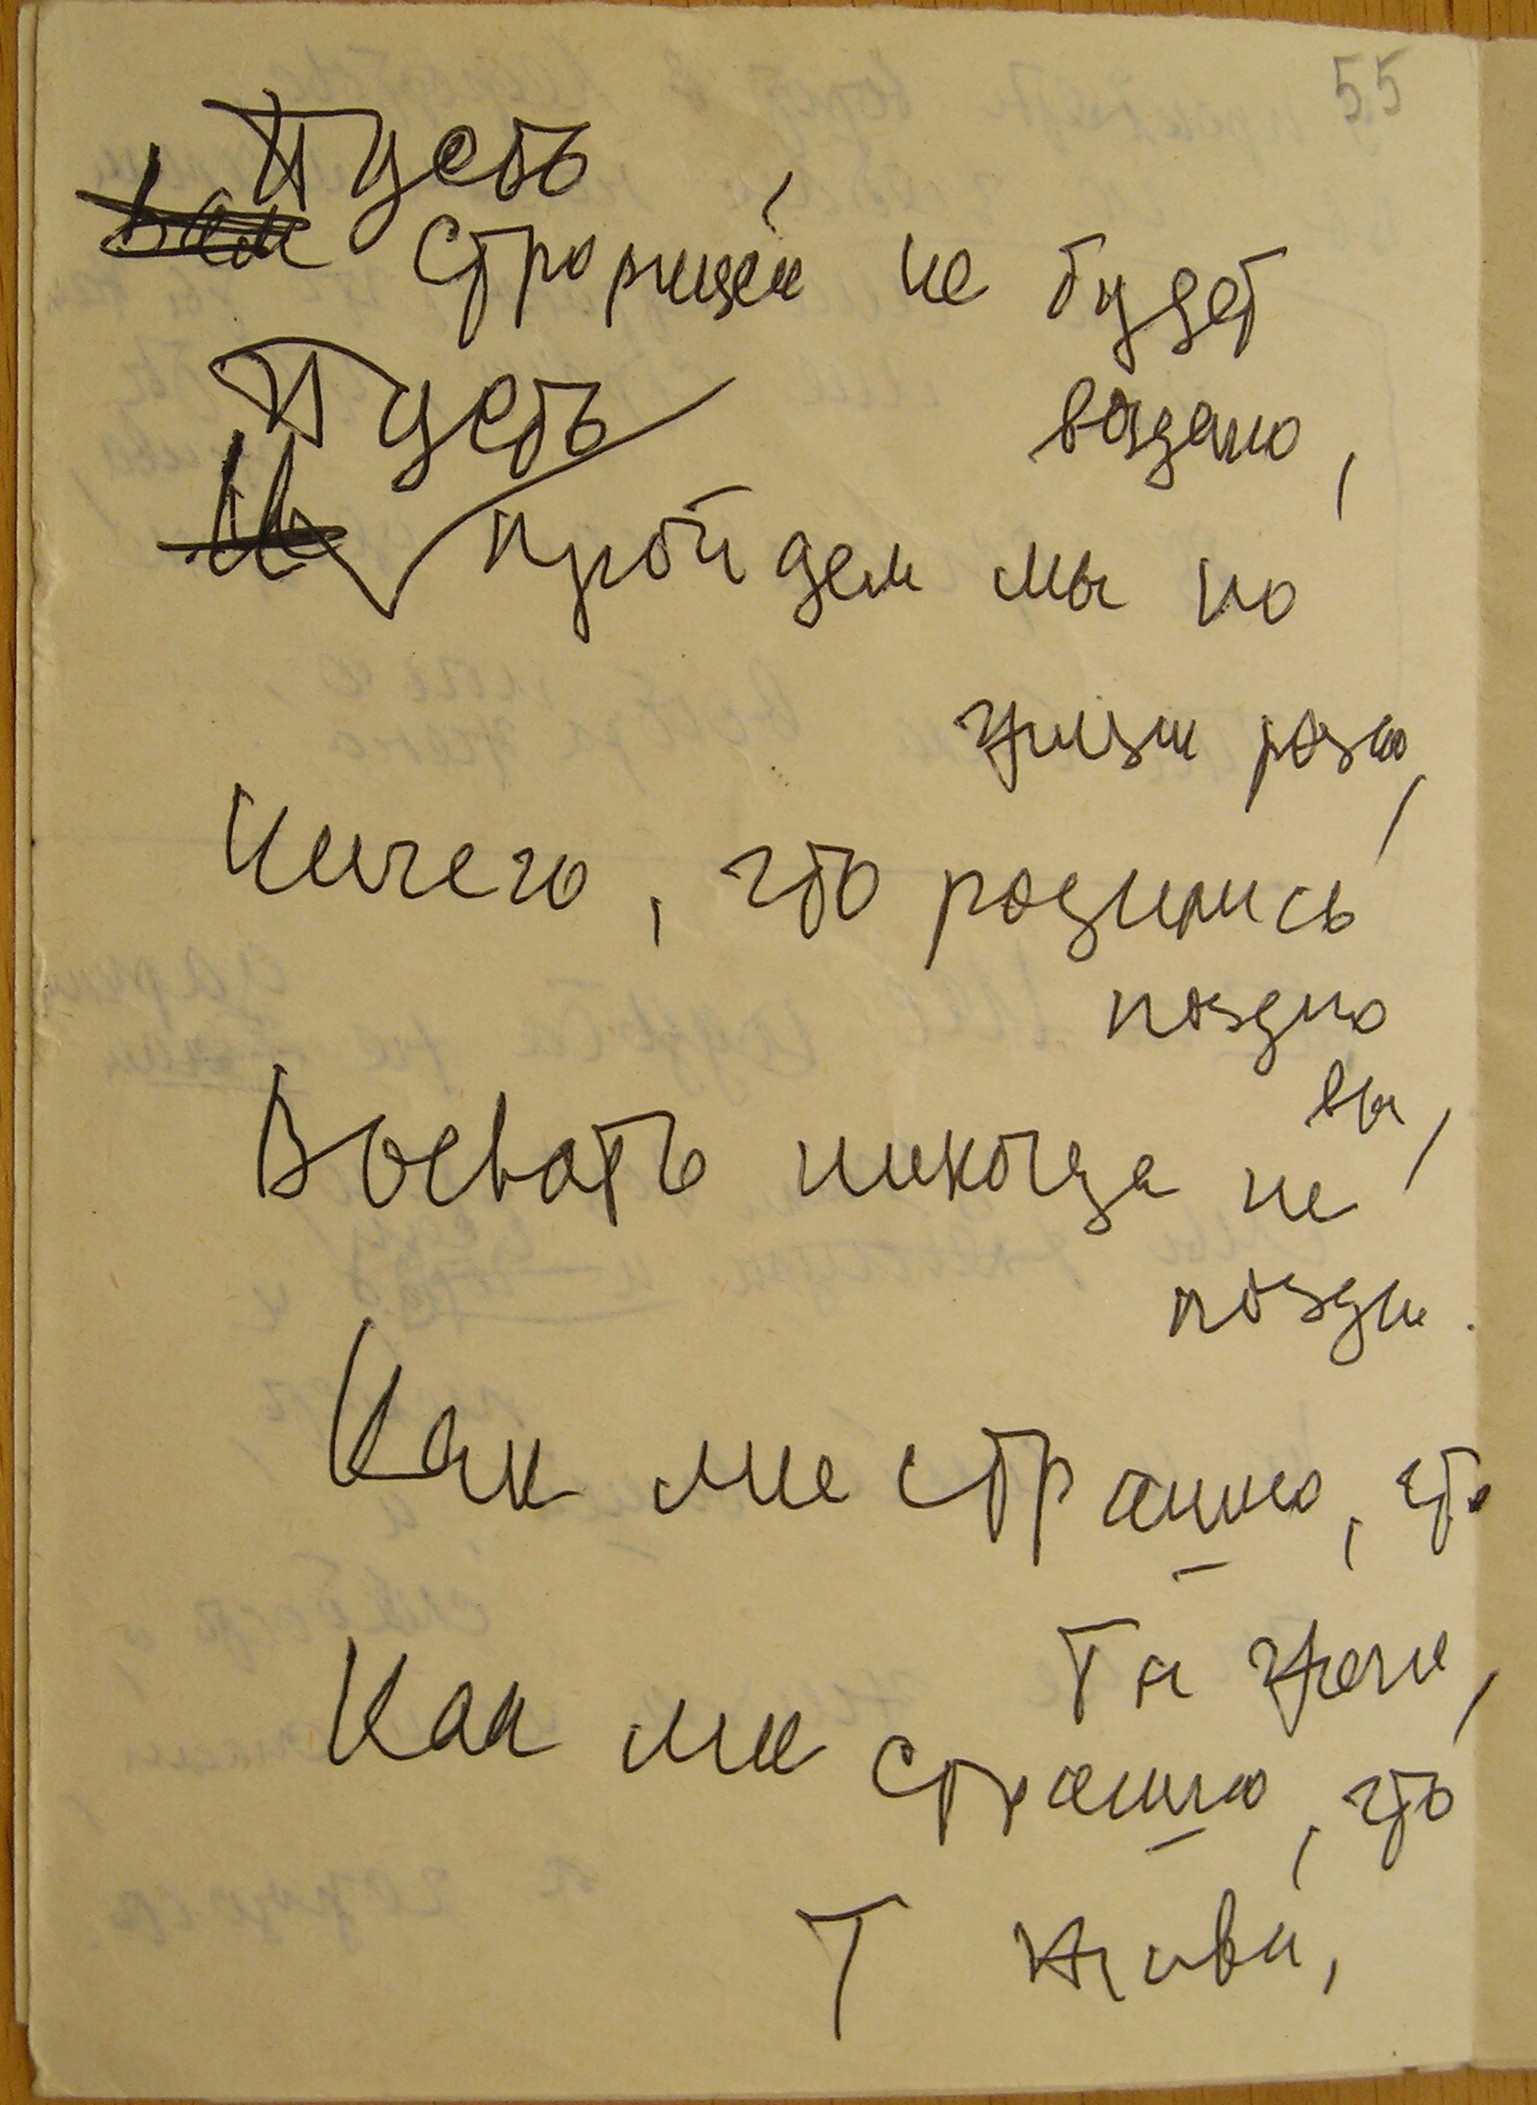 55
Пусть
Вам сторицей не будет
Пусть воздано,
И пройдем мы по
жизни розно,
Ничего, что родились
поздно
вы,
Воевать никогда не
поздно.
Как мне страшно, что
ты
Как мне страшно, что
Т жива,